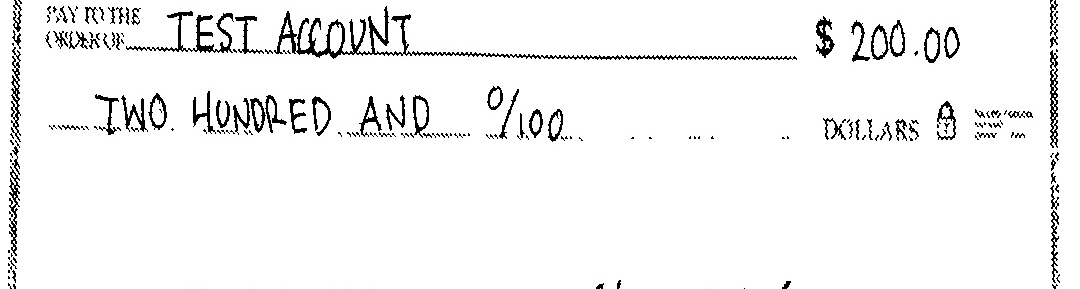 PAY TO THE
ORDER OF TEST ACCOUNT $ 200.00
TWO HUNDRED AND 0/100 DOLLARS